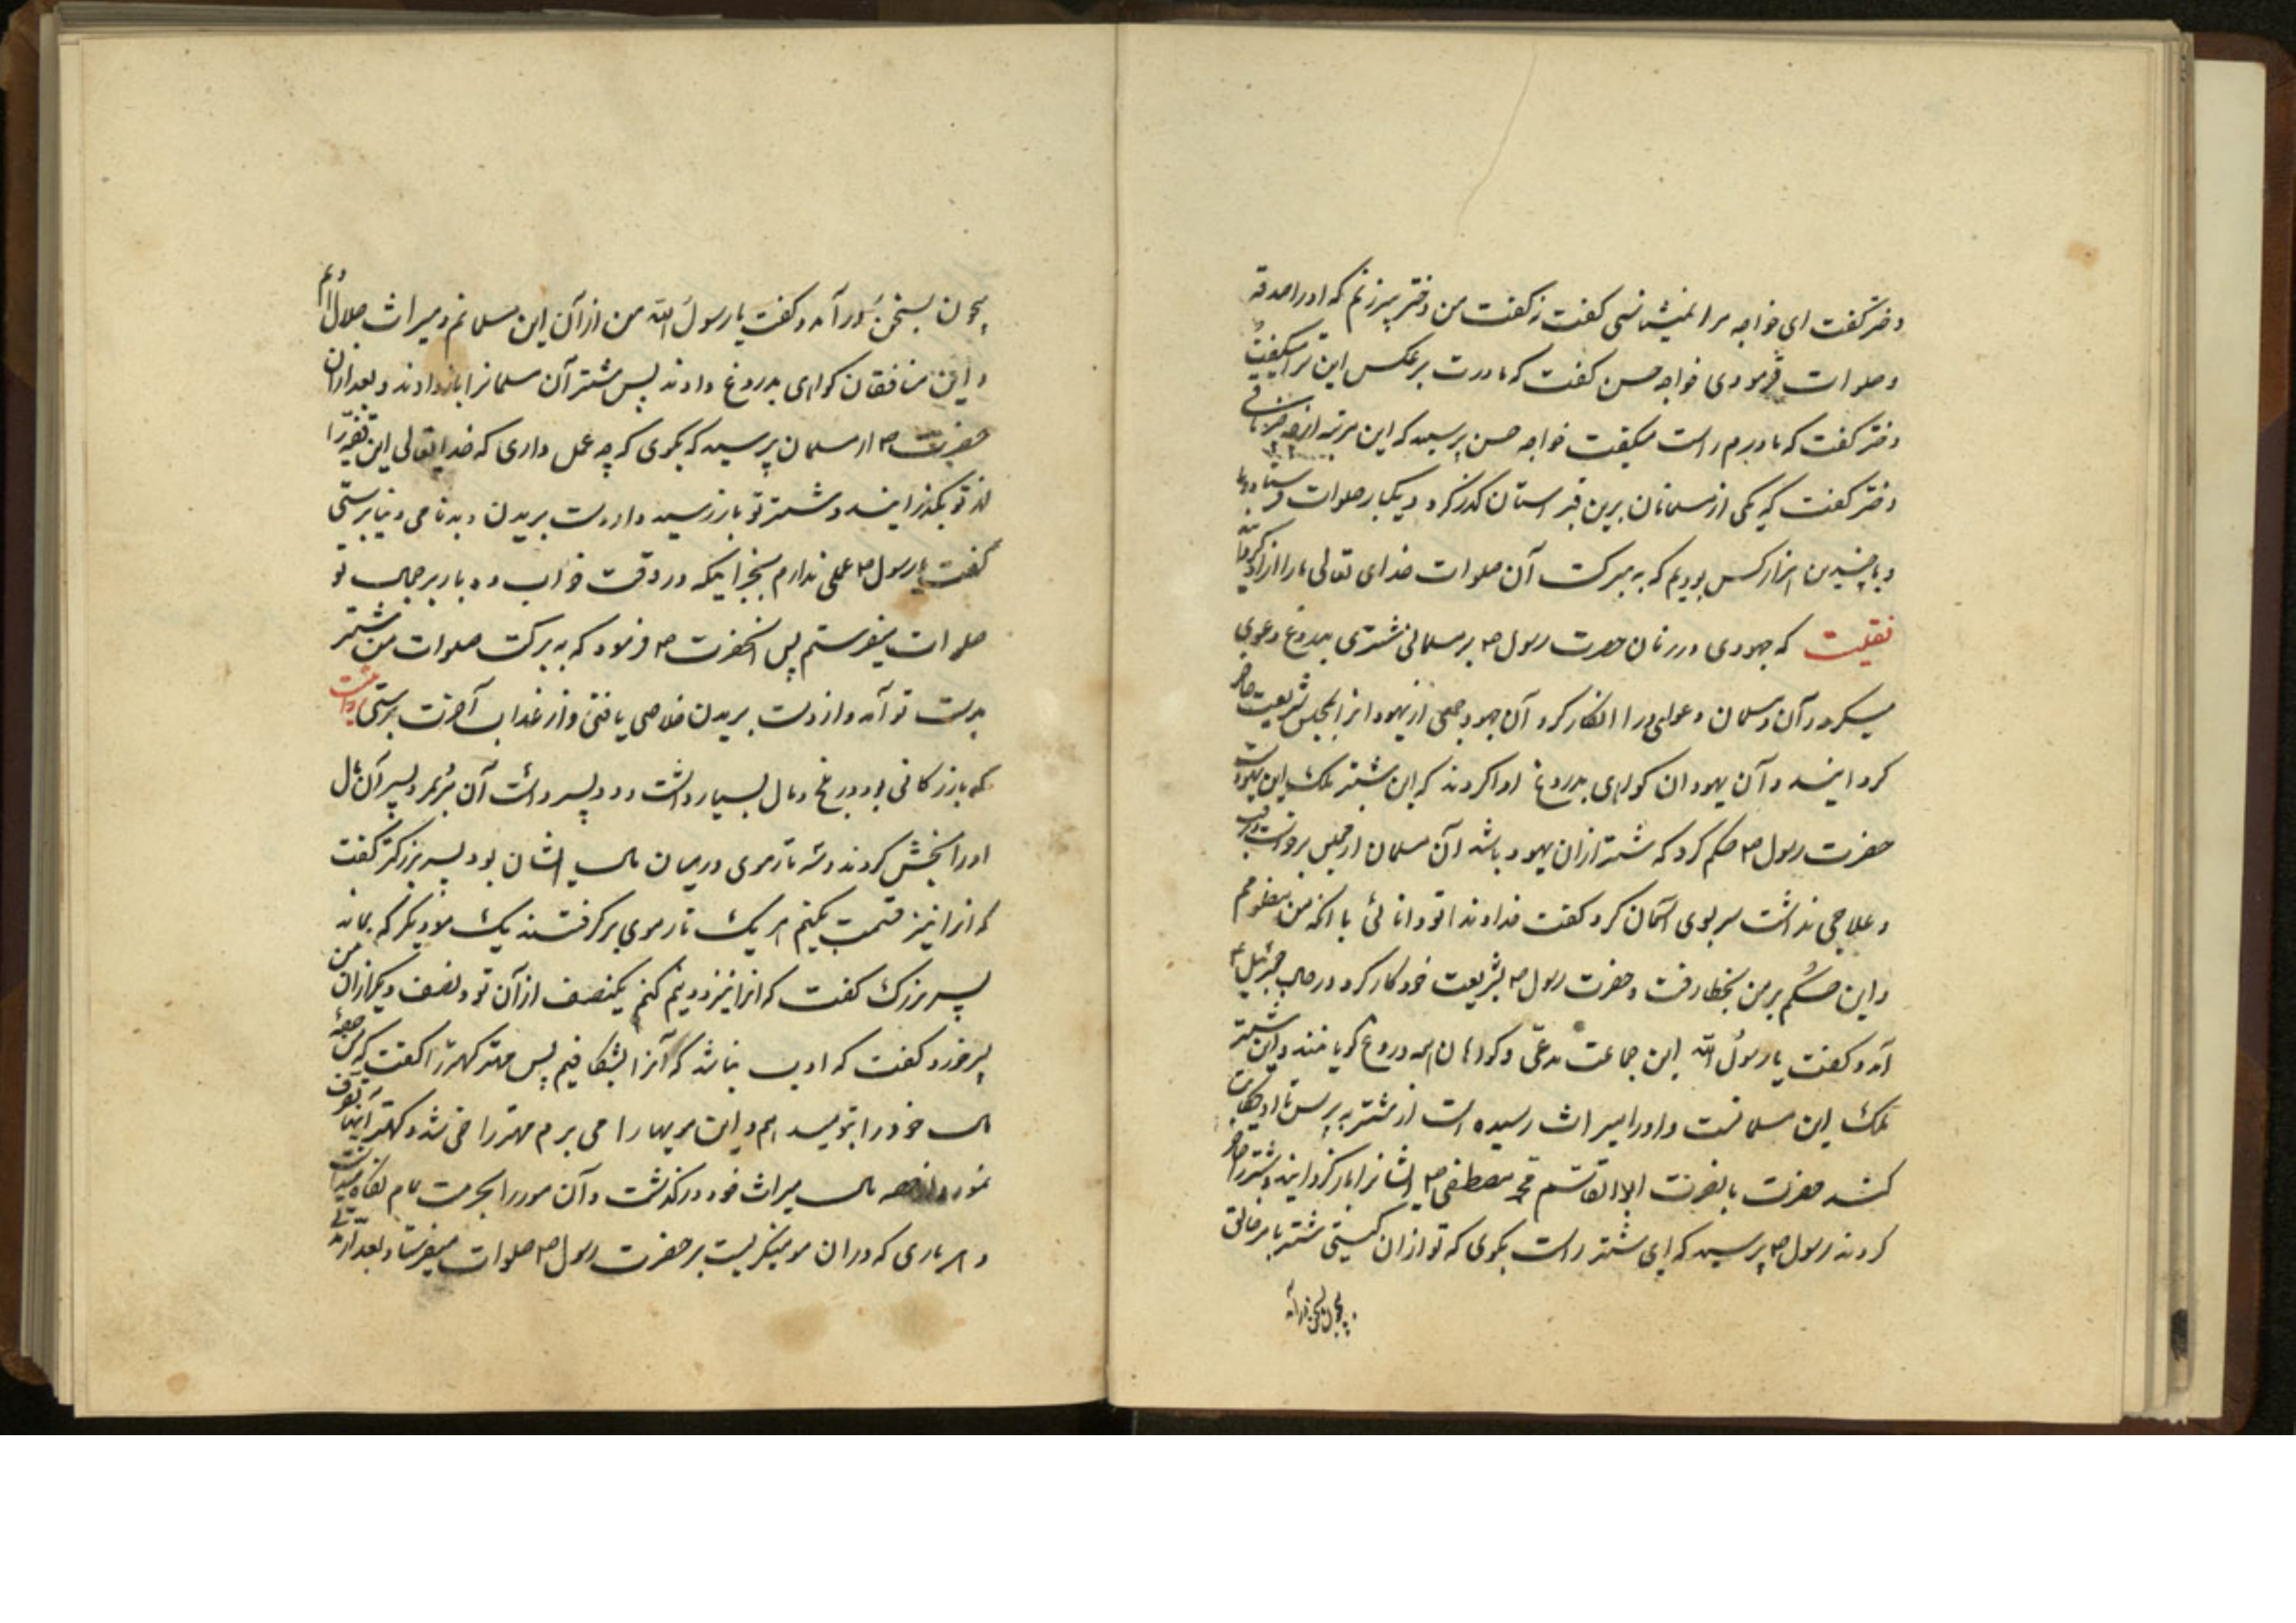 دختر گفت ای خواجه مرا نمیشناسی گفت نه گفت من دختر پیرزنم که او را صدقه
و صلوات فرمودی خواجه حسن گفت که مادرت بر عکس این ترا میگفت
دختر گفت که مادرم راست میگفت خواجه حسن پرسید که این مرتبه از چه
دختر گفت که یکی از مسلمانان برین قبرستان گذر کرد و یکبار صلوات فرستاد و ما
و با چندین هزار کس بودیم که به برکت آن صلوات خدای تعالی ما را آزاد کرد
نقلیست که جهودی در زمان حضرت رسول ص بر مسلمانی شتری بدروغ دعوی
میکرد و آن مسلمان دعوی او را انکار کرد آن جهود جمعی از یهود انرا بمجلس شریعت حاضر
کردانید و آن یهودان کواهی بدروغ ادا کردند که این شتر ملک این یهود است
حضرت رسول ص حکم کرد که شتر ازان یهود باشد آن مسلمان از مجلس برخواست
و علاجی نداشت سر بسوی آسمان کرد و گفت خداوندا تو دانائی با انکه من مظلومم
و این حکم بر من بخطا رفت و حضرت رسول ص بشریعت خود کار کرد در حال جبرئیل ع
آمد و گفت یا رسول الله این جماعت مدعی و کواهان همه دروغ کویانند و این شتر
ملک این مسلمانست و او را میراث رسیده است از شتر بپرس تا او حکایت
کند حضرت با نصرت ابا القاسم محمد مصطفی ص ایشانرا باز کردانید و شتر را حاضر
کردند رسول ص پرسید که ای شتر راست بکوی که تو ازان کیستی شتر بامر خالق
بیچون بسخن درآمد
بیچون بسخن درآمد و گفت یا رسول الله من از آن این مسلمانم و میراث حلال اویم
و این منافقان کواهی بدروغ دادند پس شتر آن مسلمانرا باز دادند و بعد ازان
حضرت ص از مسلمان پرسید که بکوی که چه عمل داری که خدایتعالی این
از تو بگذرانید و شتر تو باز رسید و از دست بریدن و بدنامی دنیا برستی
گفت یا رسول ص عملی ندارم بجز اینکه در وقت خواب ده بار بر جمال تو
صلوات میفرستم پس آنحضرت ص فرمود که به برکت صلوات من شتر
بدست تو آمد و از دست بریدن خلاصی یافتی و از عذاب آخرت برستی
که بازرگانی بود در بلخ و مال بسیار داشت و دو پسر داشت آن بمرد و پسر آن مال
او را بخش کردند و سه تار موی در میان مال ایشان بود پسر بزرگتر گفت
که انرا نیز قسمت بکنیم هر یک تار موی برگرفتند یک مو دیگر که بماند
پسر بزرگ گفت که انرا نیز دو نیم کنم یکنصف از آن تو و نصف دیگر ازان من
پسر خورد گفت که ادب نباشد که آنرا بشکافیم پس مهتر کهتر را گفت که من حصه
مال خود را بتو میدهم و این مویها را می برم مهتر راضی شد و کهتر
نمود و از حصه مال میراث خود در گذشت و آن مو را بحرمت تمام نگاه میداشت
و هر باری که در ان مو مینگریست بر حضرت رسول ص صلوات میفرستاد بعد از